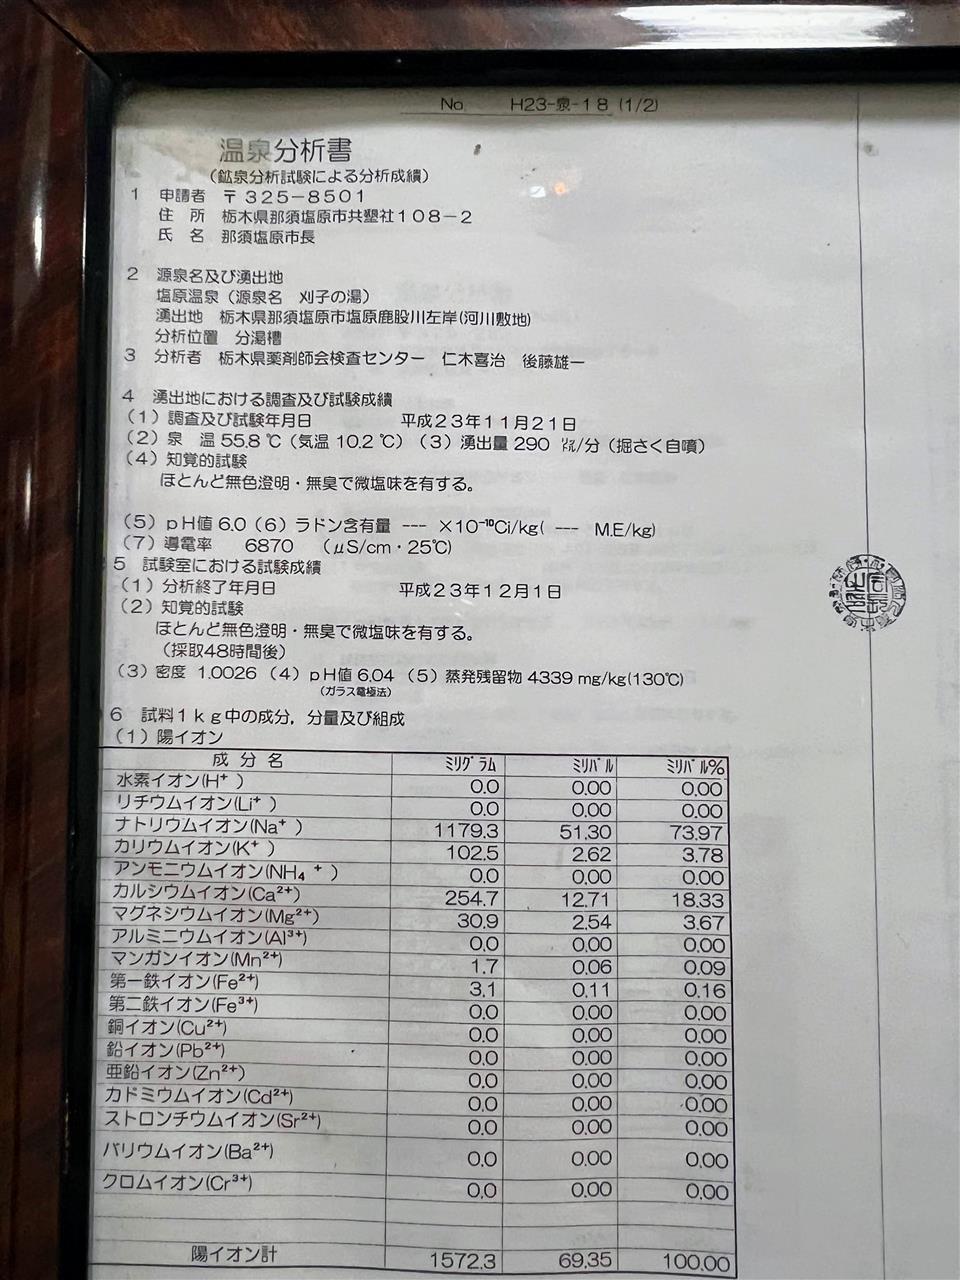 No. H23-泉-18 (1/2)
温泉分析書
(鉱泉分析試験による分析成績)
1 申請者 〒325-8501
住 所 栃木県那須塩原市共墾社108-2
氏 名 那須塩原市長
2 源泉名及び湧出地
塩原温泉(源泉名 刈子の湯)
湧出地 栃木県那須塩原市塩原鹿股川左岸(河川敷地)
分析位置 分湯槽
3 分析者 栃木県薬剤師会検査センター 仁木喜治 後藤雄一
4 湧出地における調査及び試験成績
(1)調査及び試験年月日 平成23年11月21日
(2)泉 温 55.8 ℃(気温 10.2 ℃)(3)湧出量 290 ㍑/分(掘さく自噴)
(4)知覚的試験
ほとんど無色澄明・無臭で微塩味を有する。
(5)pH値 6.0(6)ラドン含有量 --- ×10⁻¹⁰Ci/kg( --- M.E/kg)
(7)導電率 6870 (μS/cm・25℃)
5 試験室における試験成績
(1)分析終了年月日 平成23年12月1日
(2)知覚的試験
ほとんど無色澄明・無臭で微塩味を有する。
(採取48時間後)
(3)密度 1.0026 (4)pH値 6.04 (5)蒸発残留物 4339 mg/kg(130℃)
(ガラス電極法)
6 試料1kg中の成分,分量及び組成
(1)陽イオン
成 分 名 ﾐﾘｸﾞﾗﾑ ﾐﾘﾊﾞﾙ ﾐﾘﾊﾞﾙ%
水素イオン(H⁺ ) 0.0 0.00 0.00
リチウムイオン(Li⁺ ) 0.0 0.00 0.00
ナトリウムイオン(Na⁺ ) 1179.3 51.30 73.97
カリウムイオン(K⁺ ) 102.5 2.62 3.78
アンモニウムイオン(NH₄ ⁺ ) 0.0 0.00 0.00
カルシウムイオン(Ca²⁺) 254.7 12.71 18.33
マグネシウムイオン(Mg²⁺) 30.9 2.54 3.67
アルミニウムイオン(Al³⁺) 0.0 0.00 0.00
マンガンイオン(Mn²⁺) 1.7 0.06 0.09
第一鉄イオン(Fe²⁺) 3.1 0.11 0.16
第二鉄イオン(Fe³⁺) 0.0 0.00 0.00
銅イオン(Cu²⁺) 0.0 0.00 0.00
鉛イオン(Pb²⁺) 0.0 0.00 0.00
亜鉛イオン(Zn²⁺) 0.0 0.00 0.00
カドミウムイオン(Cd²⁺) 0.0 0.00 0.00
ストロンチウムイオン(Sr²⁺) 0.0 0.00 0.00
バリウムイオン(Ba²⁺) 0.0 0.00 0.00
クロムイオン(Cr³⁺) 0.0 0.00 0.00
陽イオン計 1572.3 69.35 100.00